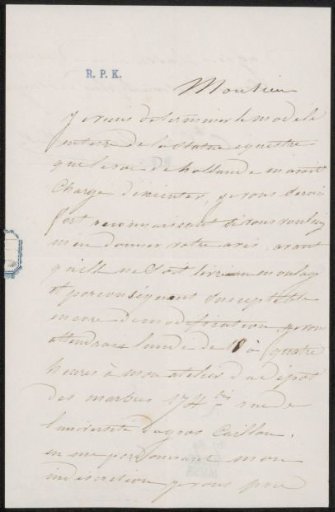 R. P. K.
Monsieur
je viens de terminer le modele
de la Statue equestre
que le roi de hollande m'avait
Chargé d'executer, je vous serai
fort reconnaissant si vous vouliez
m'en donner votre avis avant
qu'elle ne Soit livrée au moulage
et par conséquent Susceptible
encore de modification, je vous
attendrai lundi de à quatre
heures à mon atelier du dépôt
des marbres 174 rue de
l'université au gros Caillou.
en me pardonnant mon
indiscretion je vous prie